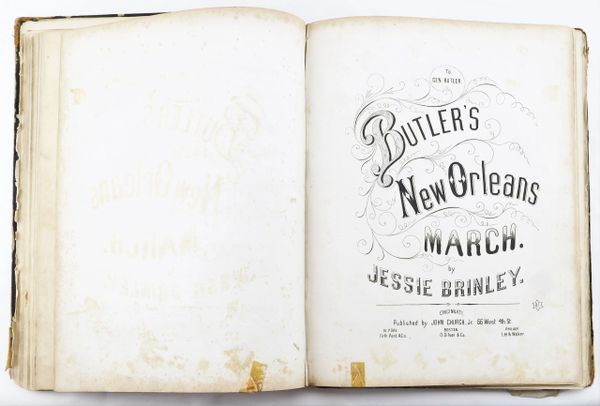 To
GEN. BUTLER
BUTLER'S
New Orleans
MARCH.
by
JESSIE BRINLEY.
CINCINNATI
Published by JOHN CHURCH, Jr. 66 West 4th St.
BOSTON
O. Ditson & Co.
Lee & Walker